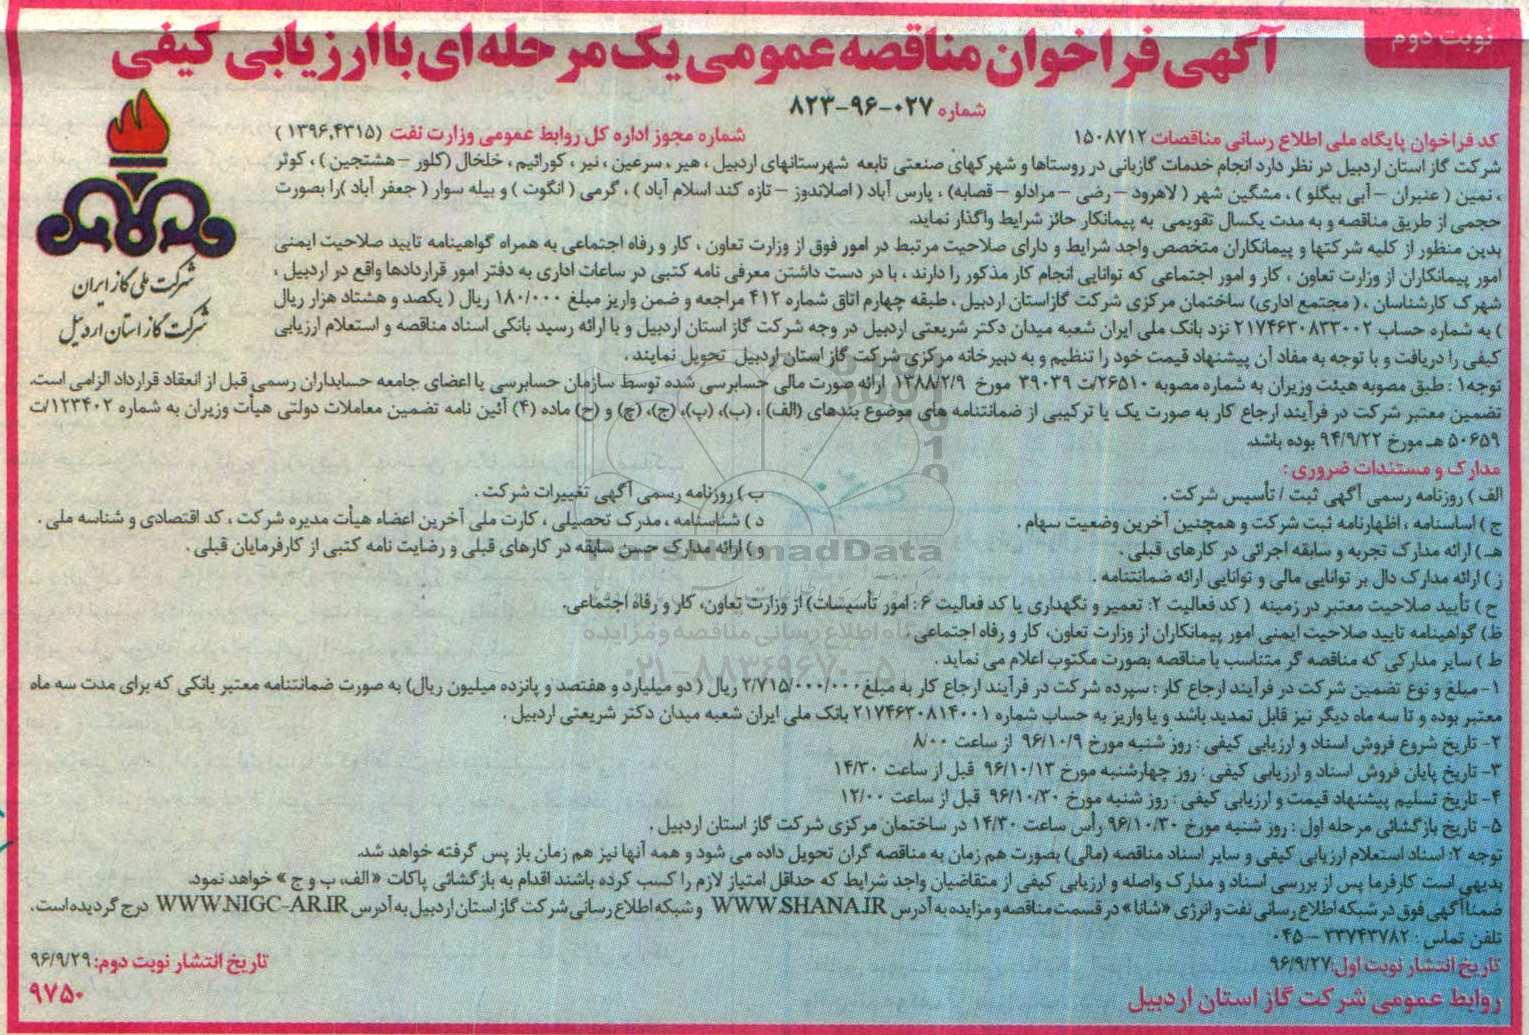 نوبت دوم
آگهی فراخوان مناقصه عمومی یک مرحله ای با ارزیابی کیفی
شماره ۰۲۷-۹۶-۸۲۳
کد فراخوان پایگاه ملی اطلاع رسانی مناقصات ۱۵۰۸۷۱۲
شماره مجوز اداره کل روابط عمومی وزارت نفت (۱۳۹۶،۴۳۱۵)
شرکت ملی گاز ایران
شرکت گاز استان اردبیل
شرکت گاز استان اردبیل در نظر دارد انجام خدمات گازبانی در روستاها و شهرکهای صنعتی تابعه شهرستانهای اردبیل ، هیر ، سرعین ، نیر ، کورائیم ، خلخال (کلور – هشتجین ) ، کوثر
، نمین ( عنبران – آبی بیگلو ) ، مشگین شهر ( لاهرود – رضی – مرادلو – قصابه) ، پارس آباد ( اصلاندوز – تازه کند اسلام آباد ) ، گرمی ( انگوت ) و بیله سوار ( جعفر آباد )را بصورت
حجمی از طریق مناقصه و به مدت یکسال تقویمی به پیمانکار حائز شرایط واگذار نماید.
بدین منظور از کلیه شرکتها و پیمانکاران متخصص واجد شرایط و دارای صلاحیت مرتبط در امور فوق از وزارت تعاون ، کار و رفاه اجتماعی به همراه گواهینامه تایید صلاحیت ایمنی
امور پیمانکاران از وزارت تعاون ، کار و امور اجتماعی که توانایی انجام کار مذکور را دارند ، با در دست داشتن معرفی نامه کتبی در ساعات اداری به دفتر امور قراردادها واقع در اردبیل ،
شهرک کارشناسان ، ( مجتمع اداری) ساختمان مرکزی شرکت گازاستان اردبیل ، طبقه چهارم اتاق شماره ۴۱۲ مراجعه و ضمن واریز مبلغ ۱۸۰/۰۰۰ ریال ( یکصد و هشتاد هزار ریال
) به شماره حساب ۲۱۷۴۶۳۰۸۳۳۰۰۲ نزد بانک ملی ایران شعبه میدان دکتر شریعتی اردبیل در وجه شرکت گاز استان اردبیل و با ارائه رسید بانکی اسناد مناقصه و استعلام ارزیابی
کیفی را دریافت و با توجه به مفاد آن پیشنهاد قیمت خود را تنظیم و به دبیرخانه مرکزی شرکت گاز استان اردبیل تحویل نمایند .
توجه۱ : طبق مصوبه هیئت وزیران به شماره مصوبه ۲۶۵۱۰/ت ۳۹۰۳۹ مورخ ۱۳۸۸/۲/۹ ارائه صورت مالی حسابرسی شده توسط سازمان حسابرسی یا اعضای جامعه حسابداران رسمی قبل از انعقاد قرارداد الزامی است.
تضمین معتبر شرکت در فرآیند ارجاع کار به صورت یک یا ترکیبی از ضمانتنامه های موضوع بندهای (الف) ، (ب)، (پ)، (ج)، (چ) و (ح) ماده (۴) آئین نامه تضمین معاملات دولتی هیأت وزیران به شماره ۱۲۳۴۰۲/ت
۵۰۶۵۹ هـ مورخ ۹۴/۹/۲۲ بوده باشد.
مدارک و مستندات ضروری :
الف ) روزنامه رسمی آگهی ثبت / تأسیس شرکت . ب ) روزنامه رسمی آگهی تغییرات شرکت .
ج ) اساسنامه ، اظهارنامه ثبت شرکت و همچنین آخرین وضعیت سهام . د ) شناسنامه ، مدرک تحصیلی ، کارت ملی آخرین اعضاء هیأت مدیره شرکت ، کد اقتصادی و شناسه ملی .
هـ ) ارائه مدارک تجربه و سابقه اجرائی در کارهای قبلی . و ) ارائه مدارک حسن سابقه در کارهای قبلی و رضایت نامه کتبی از کارفرمایان قبلی .
ز ) ارائه مدارک دال بر توانایی مالی و توانایی ارائه ضمانتنامه .
ح ) تأیید صلاحیت معتبر در زمینه ( کد فعالیت ۲: تعمیر و نگهداری یا کد فعالیت ۶ : امور تأسیسات) از وزارت تعاون، کار و رفاه اجتماعی.
ظ) گواهینامه تایید صلاحیت ایمنی امور پیمانکاران از وزارت تعاون، کار و رفاه اجتماعی
ط ) سایر مدارکی که مناقصه گر متناسب با مناقصه بصورت مکتوب اعلام می نماید .
۱- مبلغ و نوع تضمین شرکت در فرآیند ارجاع کار : سپرده شرکت در فرآیند ارجاع کار به مبلغ ۲/۷۱۵/۰۰۰/۰۰۰ ریال ( دو میلیارد و هفتصد و پانزده میلیون ریال) به صورت ضمانتنامه معتبر بانکی که برای مدت سه ماه
معتبر بوده و تا سه ماه دیگر نیز قابل تمدید باشد و یا واریز به حساب شماره ۲۱۷۴۶۳۰۸۱۴۰۰۱ بانک ملی ایران شعبه میدان دکتر شریعتی اردبیل .
۲- تاریخ شروع فروش اسناد و ارزیابی کیفی : روز شنبه مورخ ۹۶/۱۰/۹ از ساعت ۸/۰۰
۳- تاریخ پایان فروش اسناد و ارزیابی کیفی : روز چهارشنبه مورخ ۹۶/۱۰/۱۳ قبل از ساعت ۱۴/۳۰
۴- تاریخ تسلیم پیشنهاد قیمت و ارزیابی کیفی : روز شنبه مورخ ۹۶/۱۰/۳۰ قبل از ساعت ۱۲/۰۰
۵- تاریخ بازگشائی مرحله اول : روز شنبه مورخ ۹۶/۱۰/۳۰ رأس ساعت ۱۴/۳۰ در ساختمان مرکزی شرکت گاز استان اردبیل .
توجه ۲: اسناد استعلام ارزیابی کیفی و سایر اسناد مناقصه (مالی) بصورت هم زمان به مناقصه گران تحویل داده می شود و همه آنها نیز هم زمان باز پس گرفته خواهد شد.
بدیهی است کارفرما پس از بررسی اسناد و مدارک واصله و ارزیابی کیفی از متقاضیان واجد شرایط که حداقل امتیاز لازم را کسب کرده باشند اقدام به بازگشائی پاکات «الف، ب و ج » خواهد نمود.
ضمناً آگهی فوق در شبکه اطلاع رسانی نفت و انرژی «شانا» در قسمت مناقصه و مزایده به آدرس WWW.SHANA.IR و شبکه اطلاع رسانی شرکت گاز استان اردبیل به آدرس WWW.NIGC-AR.IR درج گردیده است .
تلفن تماس : ۳۳۷۴۳۷۸۲ – ۰۴۵
تاریخ انتشار نوبت اول: ۹۶/۹/۲۷
تاریخ انتشار نوبت دوم: ۹۶/۹/۲۹
روابط عمومی شرکت گاز استان اردبیل
۹۷۵۰
ParsNamadData
پایگاه اطلاع رسانی مناقصه و مزایده
۰۲۱-۸۸۳۴۹۶۷۰-۵